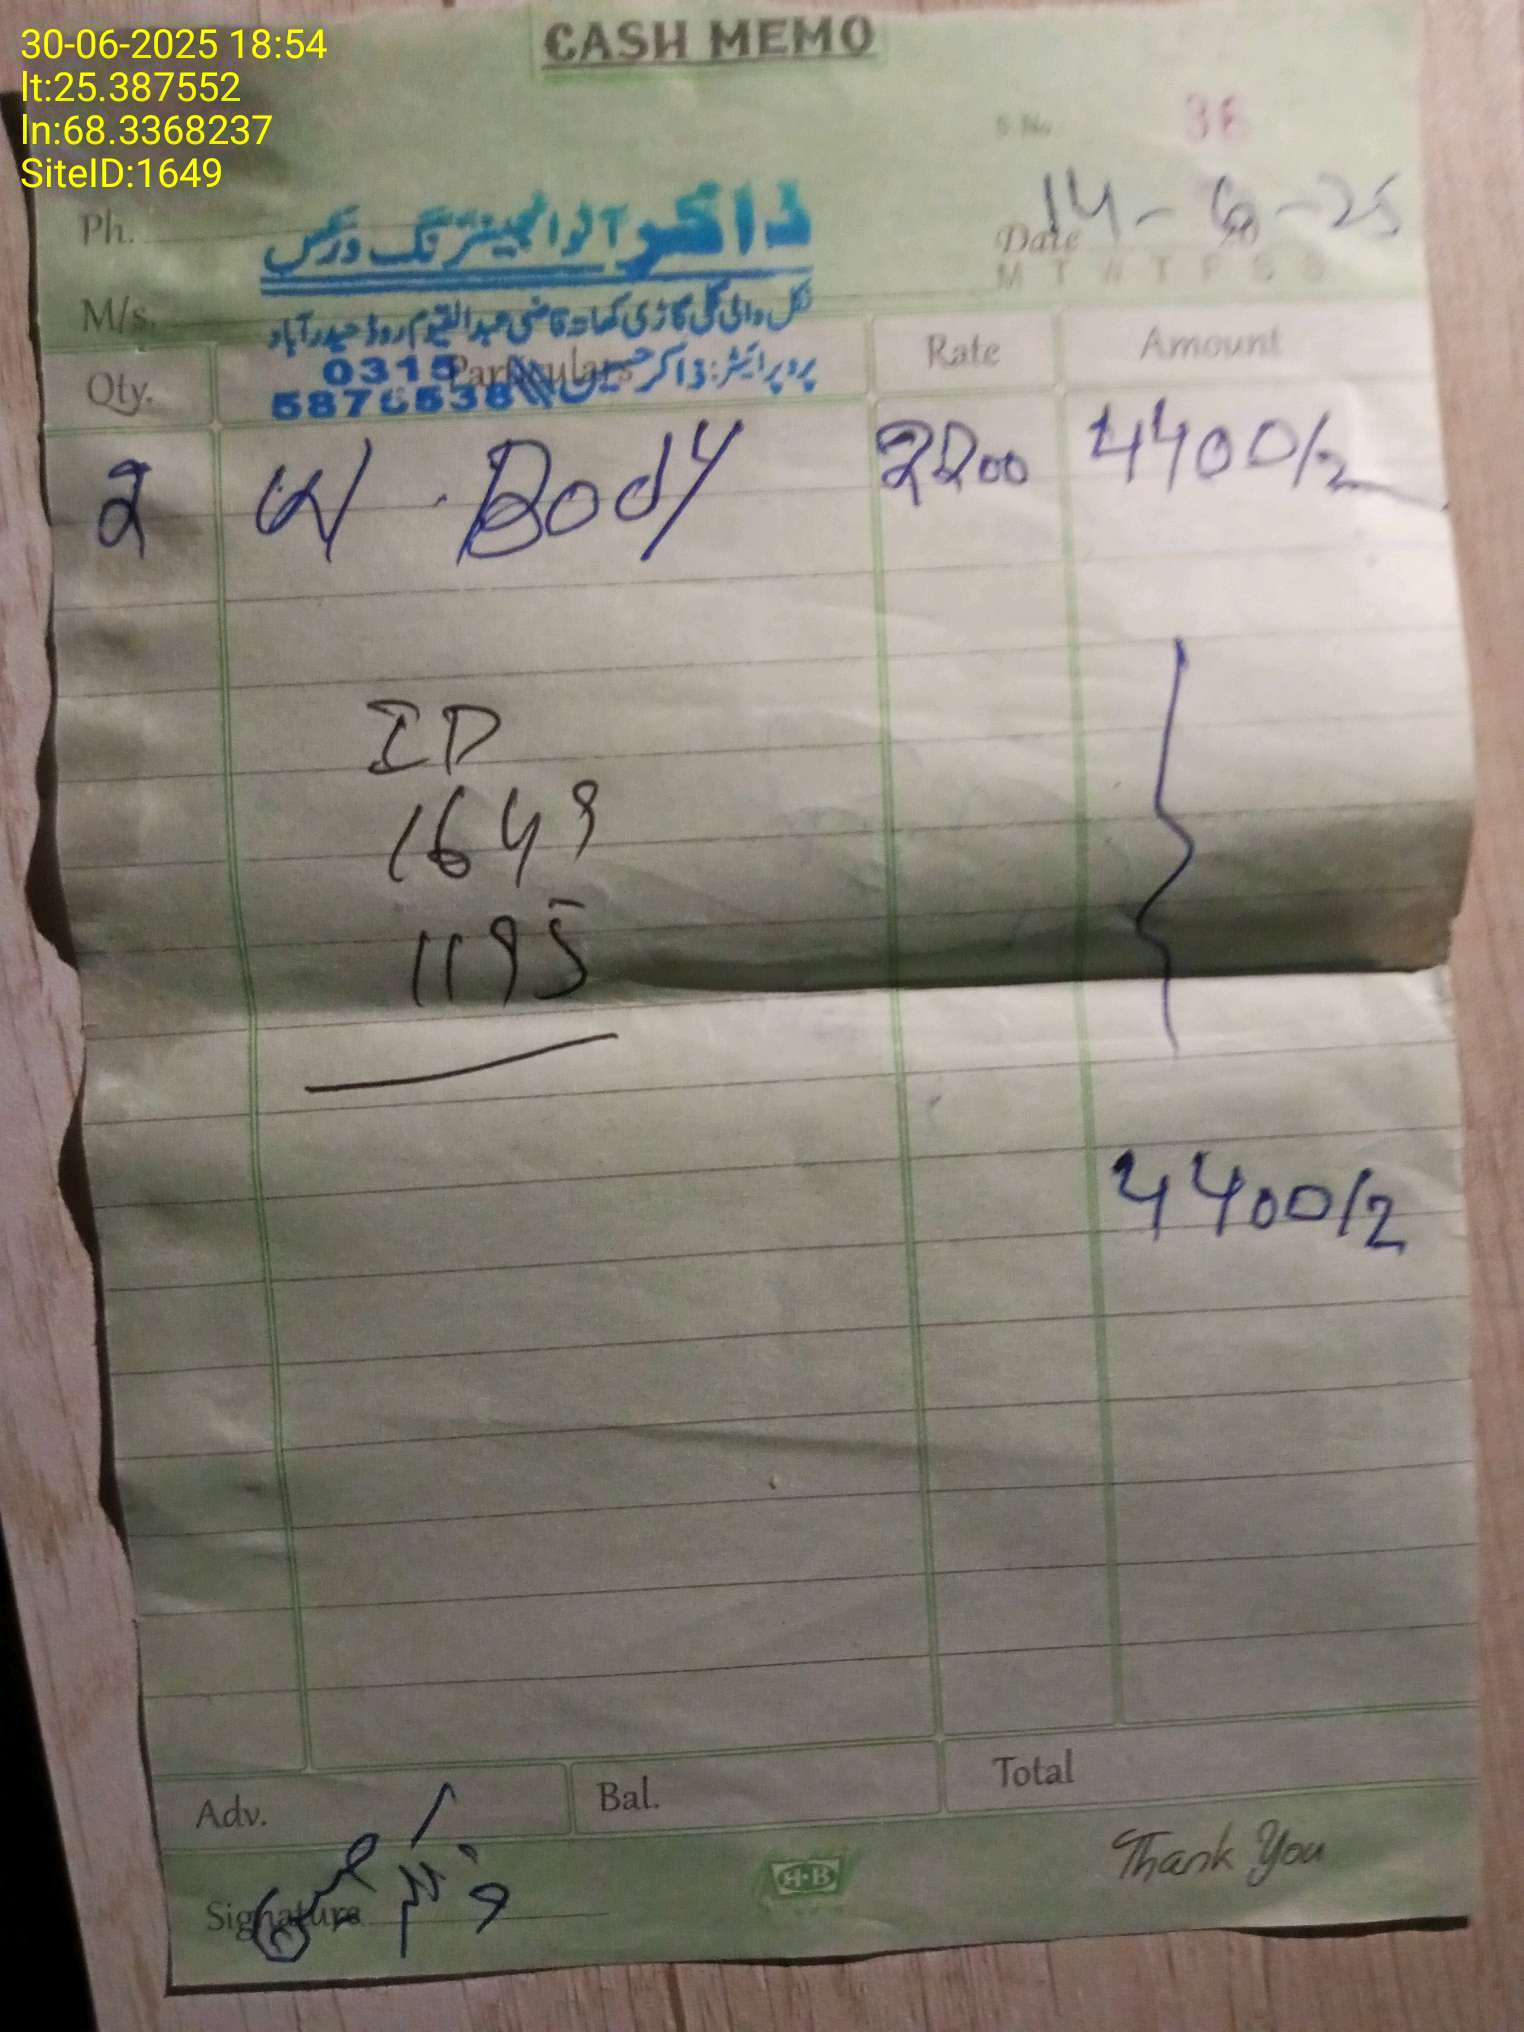 30-06-2025 18:54
lt:25.387552
ln:68.3368237
SiteID:1649
CASH MEMO
S No. 36
Ph.
ذاکر آٹو انجینئرنگ ورکس
Date 14-6-25
M T W T F S S
M/s.
گلی گاڑی کھاتہ قاضی عبدالقیوم روڈ حیدرآباد
پروپرائیٹر: ذاکر حسین
0315
Qty. Particulars Rate Amount
2 W Body 2200 4400/2
ID
1649
1195
4400/2
Adv. Bal. Total
Signature
H·B
Thank You